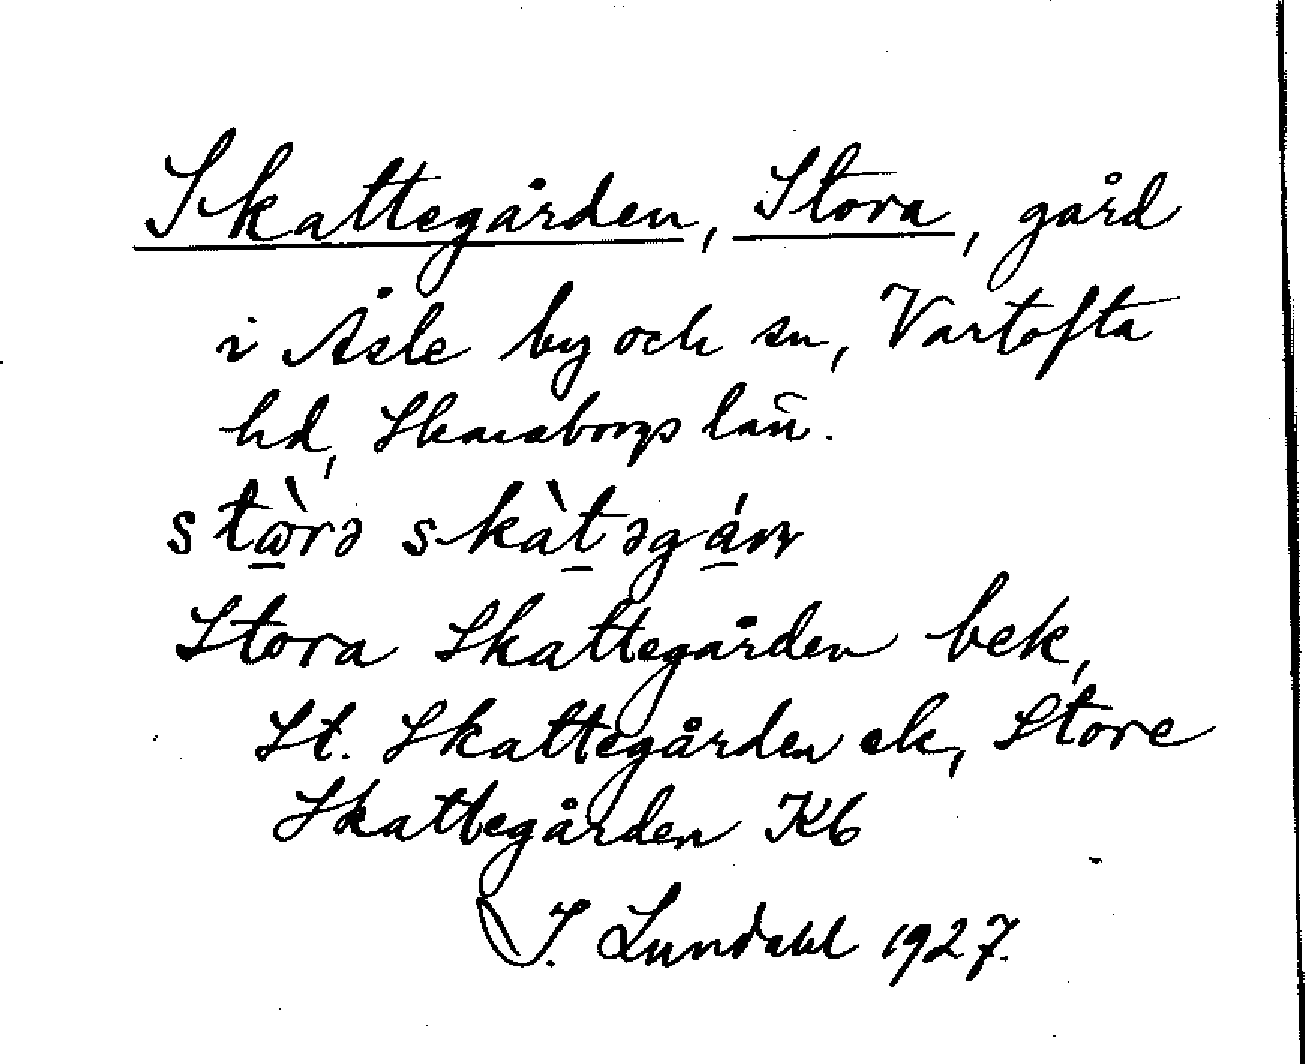 Skattegården, Stora, gård
i Åsle by och sn, Vartofta
hd, Skaraborgs län.
stὼrə skàtəgán
Stora Skattegården bek,
St. Skattegården ek, Store
Skattegården Kb
I. Lundahl 1927.